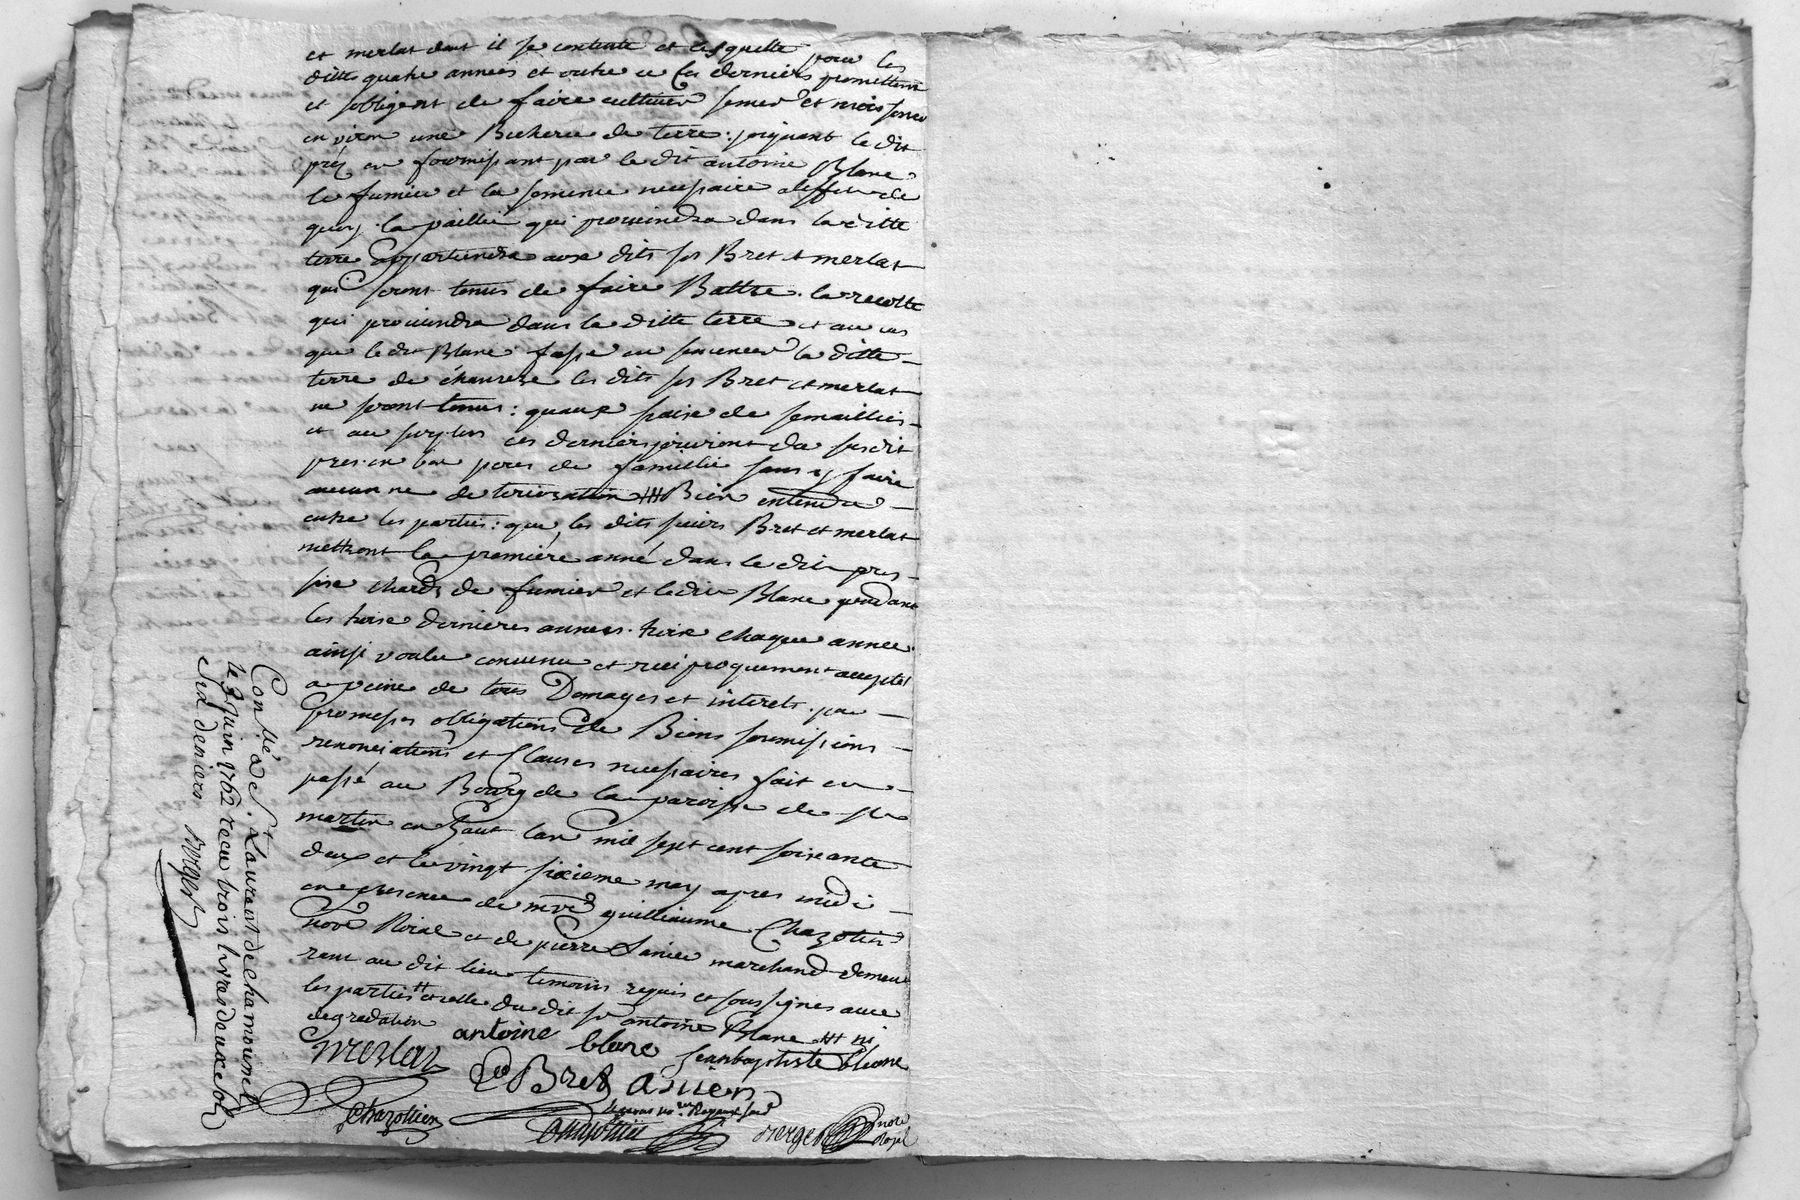 et merlat dont il se contente et les quitte pour les
dittes quatre années et outre ce les derniers promettent
et sobligent de faire cultiver semer et moissonner
environ une Bicherée de terre joignant le dit
prés en fournissant par le dit antoine Blanc
le fumier et la semence necessaire aleffet de
quoy la paillie qui proviendra dans la ditte
terre appartiendra aux dits srs Bret et merlat
qui seront tenus de faire Battre la recolte
qui proviendra dans la ditte terre et au cas
que le dit Blanc fasse en semencer la ditte
terre de chanvre les dits srs Bret et merlat
ne seront tenus : quaux fraix de semaillies
et au surplus ces derniers joüiront du susdit
pres en bon peres de famillie sans y faire
aucunne deteriozation ### Bien entendu
entre les parties : que les dits sieurs Bret et merlat
mettront la première anné dans le dit pres
six chards de fumier et ledit Blanc pendant
les troix dernieres années troix chaque année
ainsi voulu convenu et reciproquement accepté
a peine de tous Domages et interets par
promesses obligations de Biens soumissions
renonciations et Clauses necessaires fait et
passé au Bourg de la paroisse de st
martin en haut lan mil sept cent soixante
deux et le vingt sixieme may apres midi
en presence de mre guilliaume Chazottier
nore Roial et de pierre Janier marchand demeu
rant au dit lieu temoins requis et soussignes avec
les parties ++ et celle du dit sr antoine Blanc ### ni
degredation
antoine blanc jeanbaptiste blanc
merlat
Bret asnien
Chazottier
Chazottier
Berger nore Royal
Conllé a St Laurent de chamousset
le 3 juin 1762 recu trois livres deux sols
six deniers. Berger